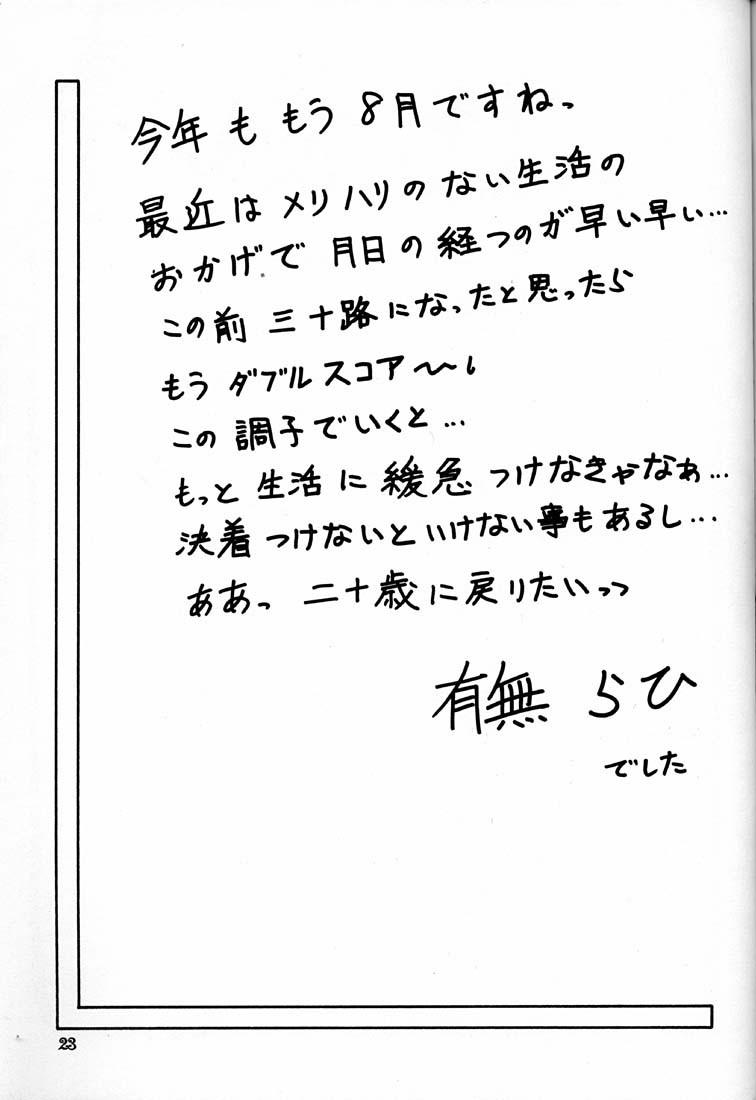 今年ももう8月ですねっ
最近はメリハリのない生活の
おかげで月日の経つのが早い早い…
この前三十路になったと思ったら
もうダブルスコア〜〜!
この調子でいくと…
もっと生活に緩急つけなきゃなぁ…
決着つけないといけない事もあるし…
ああっ二十歳に戻りたいっっ
有無らひ
でした
23